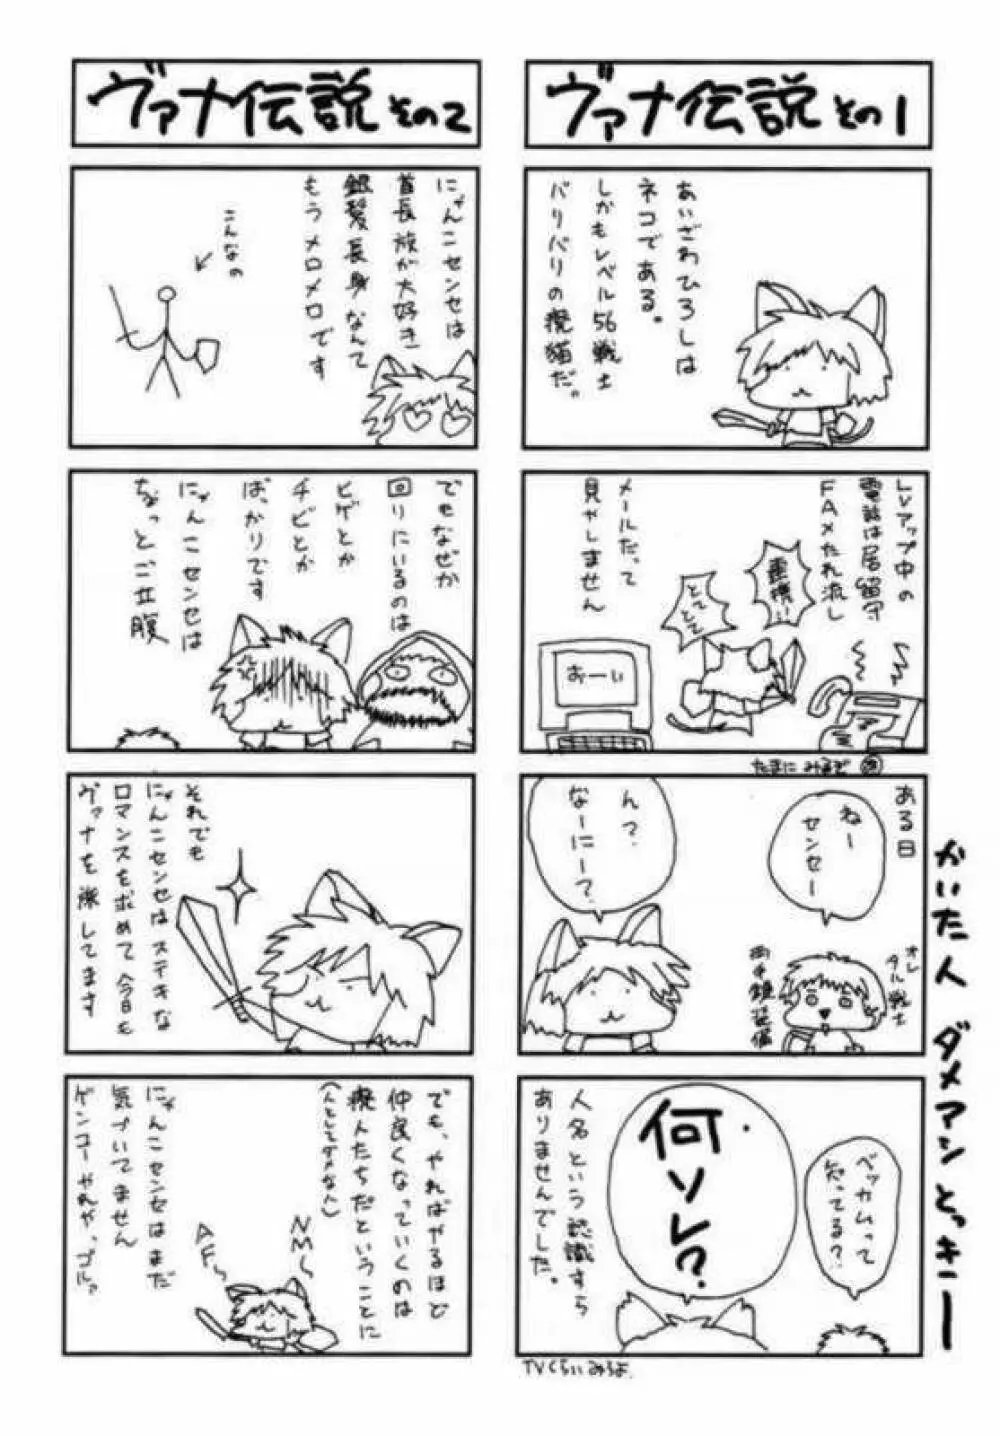 ヴァナ伝説 その1
あいざわひろしは
ネコである。
しかもレベル56戦士
バリバリの廃猫だ。
LVアップ中の
電話は居留守
FAXたれ流し
メールだって
見やしません
連携!!
とてとて
おーい
たまにみるぞ
ある日
ねー
センセー
ん?
なーにー?
オレ
タル戦士
両手鎌装備
ベッカムって
知ってる?
何ソレ?
人名という認識すら
ありませんでした。
TVくらいみろよ.
かいた人 ダメマンとっキー
ヴァナ伝説 その2
にゃんこセンセは
首長族が大好き
銀髪長身なんて
もうメロメロです
こんなの
でもなぜか
回りにいるのは
ヒゲとか
チビとか
ばっかりです
にゃんこセンセは
ちょっとご立腹
それでも
にゃんこセンセはステキな
ロマンスを求めて今日も
ヴァナを旅してます
でも、やればやるほど
仲良くなっていくのは
廃人たちだということに
(人としてダメな人)
にゃんこセンセはまだ
気づいてません
ゲンコーやれや、ゴルァ
NM〜
AF〜